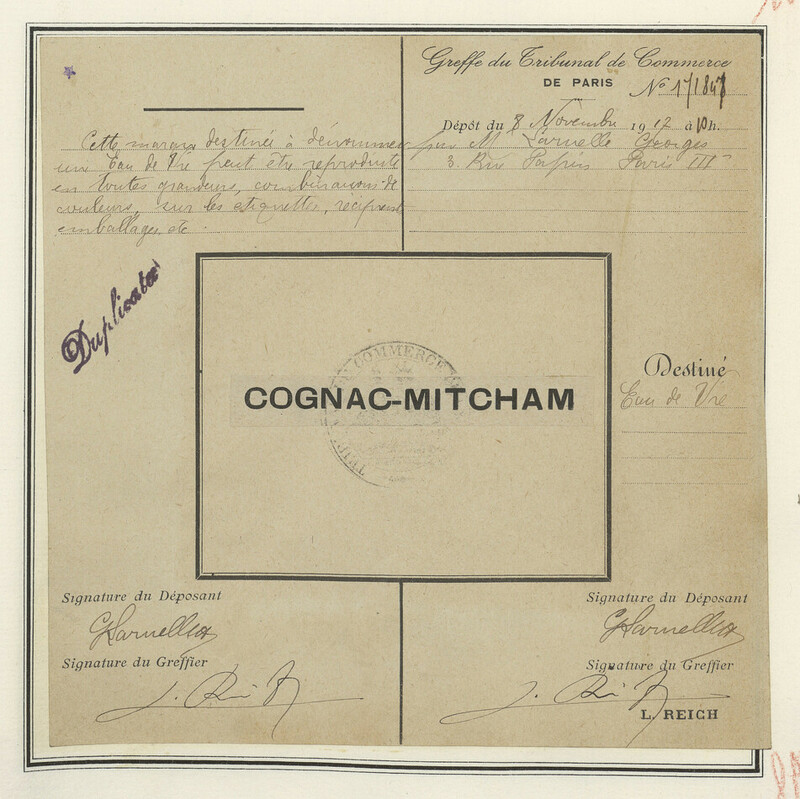 Greffe du Tribunal de Commerce
DE PARIS
No
Dépôt du 8 Novembre 1917 à 10h.
par M Larnelle Georges
3. Rue Papin Paris IIIe
Cette marque destinée à dénommer
une Eau de Vie peut être reproduite
en toutes grandeurs, combinaisons de
couleurs, sur les étiquettes, récipients
emballages, etc.
Duplicata
TRIBUNAL COMMERCE
COGNAC-MITCHAM
Destiné
Eau de Vie
Signature du Déposant
Signature du Greffier
Signature du Déposant
Signature du Greffier
L. REICH